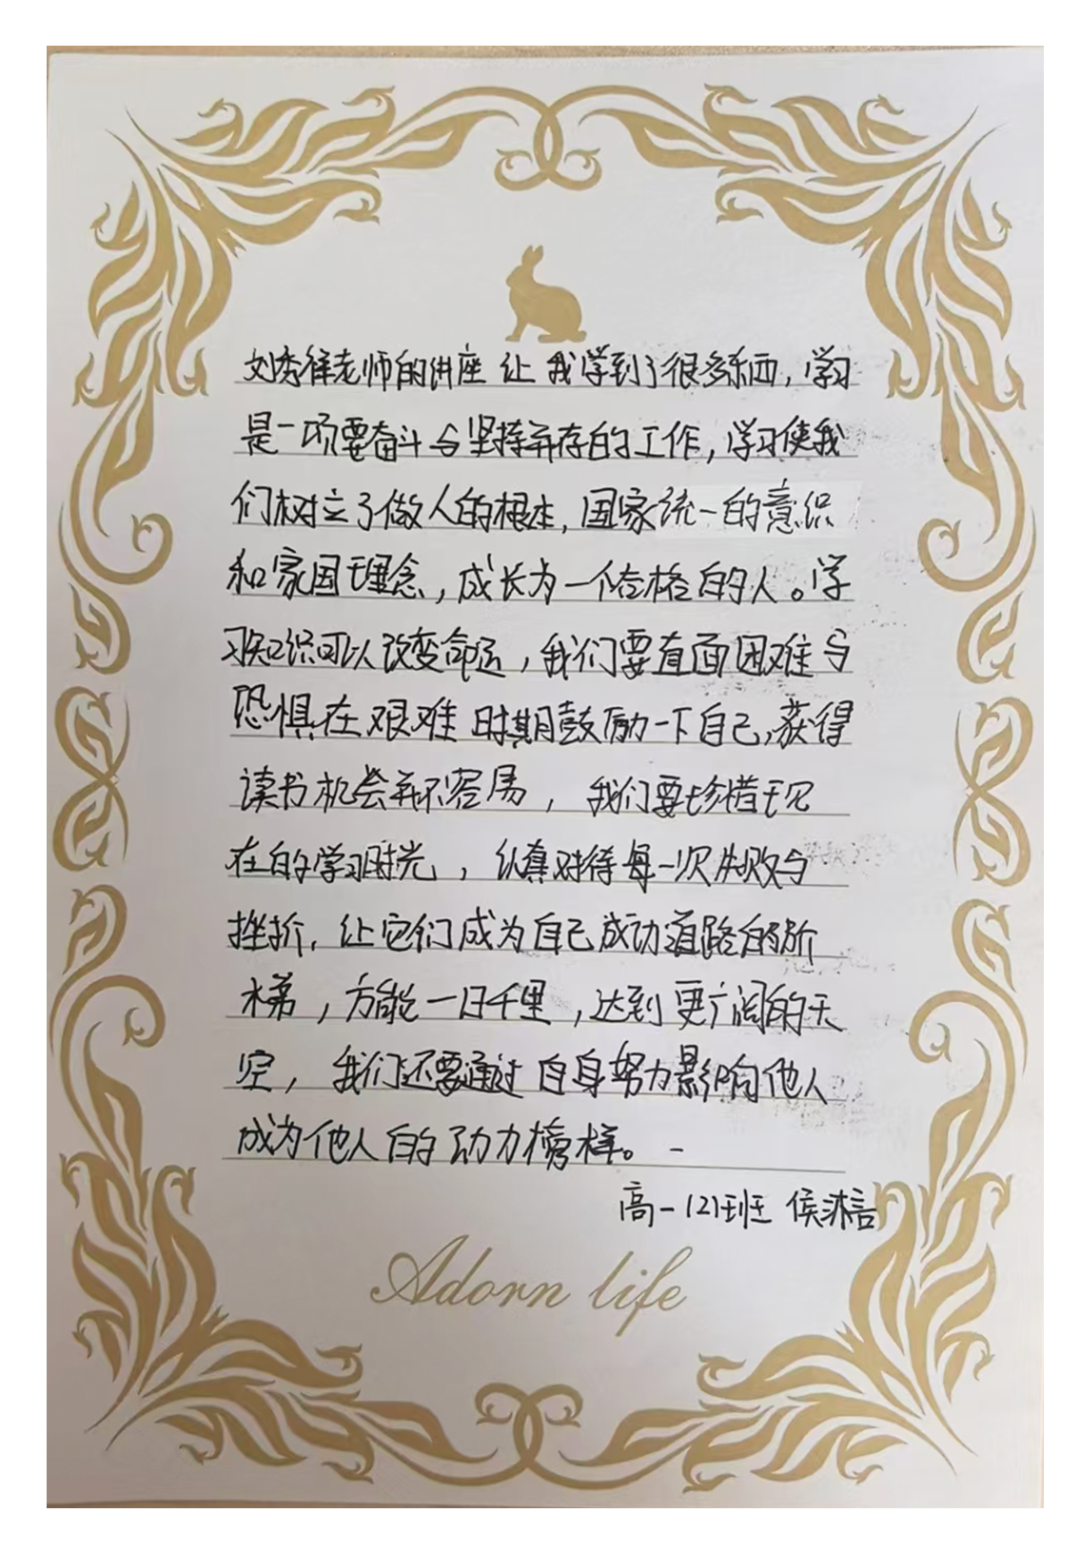 刘秀祥老师的讲座让我学到了很多东西，学习
是一项要奋斗与坚持并存的工作，学习使我
们树立了做人的根本，国家统一的意识
和家国理念，成长为一个合格的人。学
习知识可以改变命运，我们要直面困难与
恐惧在艰难时期鼓励一下自己，获得
读书机会并不容易，我们要珍惜现
在的学习时光，认真对待每一次失败与
挫折，让它们成为自己成功道路的阶
梯，方能一日千里，达到更广阔的天
空，我们还要通过自身努力影响他人
成为他人的动力榜样。
高一121班 侯沐言
Adorn life